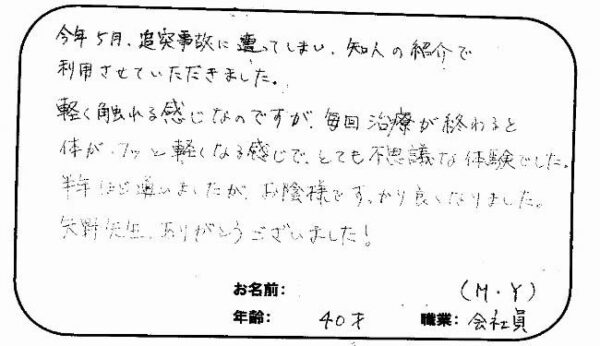 今年5月、追突事故に遭ってしまい、知人の紹介で
利用させていただきました。
軽く触れる感じなのですが、毎回治療が終わると
体が、フッと軽くなる感じで、とても不思議な体験でした。
半年ほど通いましたが、お陰様ですっかり良くなりました。
矢野先生、ありがとうございました!
お名前: (M・Y)
年齢: 40才 職業: 会社員